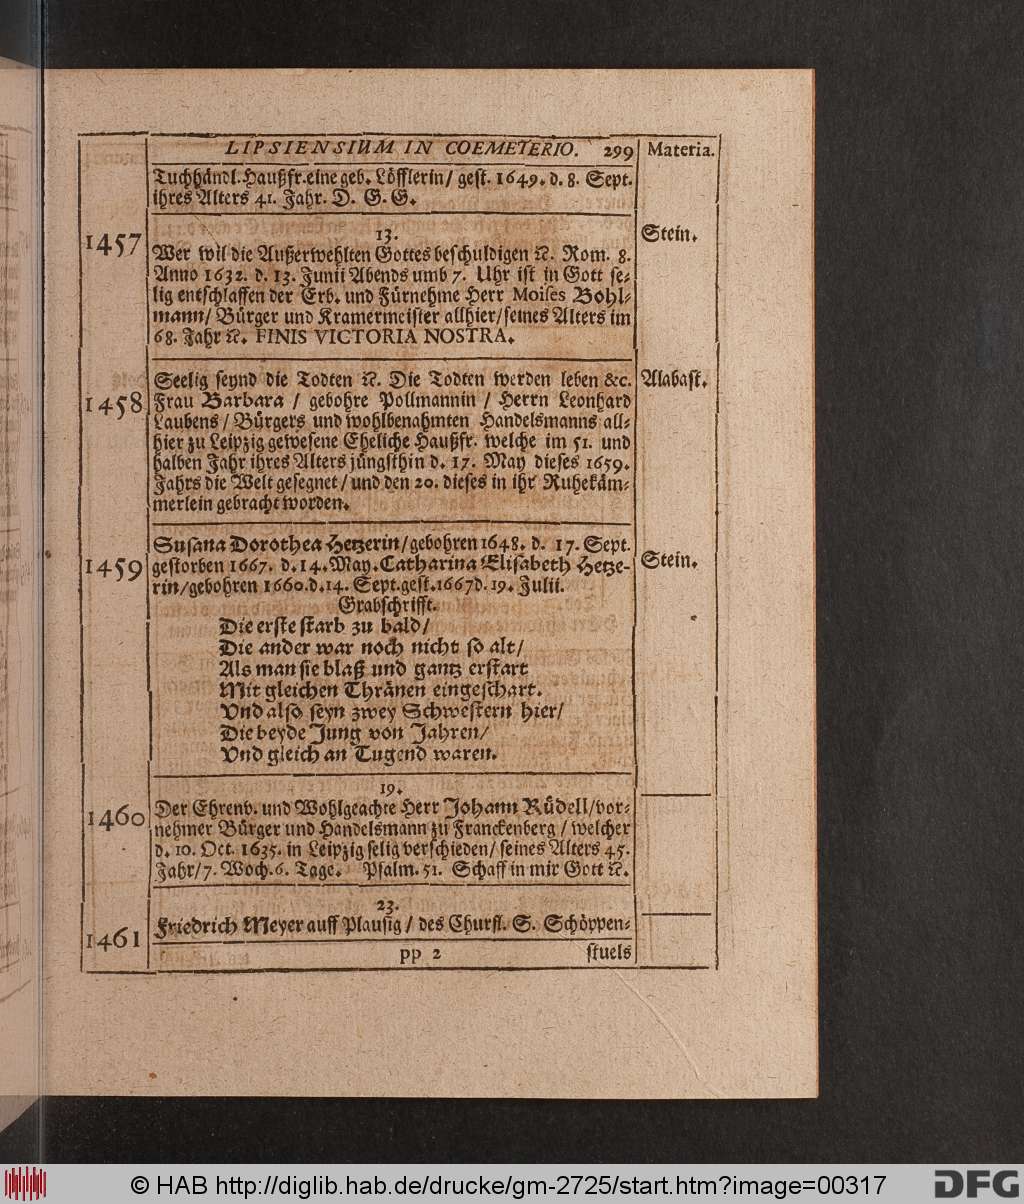 LIPSIENSIUM IN COEMETERIO. 299 Materia.
Tuchhändl. Haußfr. eine geb. Löfflerin/ gest. 1649. d. 8. Sept.
ihres Alters 41. Jahr. D. G. G.
13.
1457 Stein.
Wer wil die Außerwehlten Gottes beschuldigen ꝛc. Rom. 8.
Anno 1632. d. 13. Junii Abends umb 7. Uhr ist in Gott se-
lig entschlaffen der Erb. und Fürnehme Herr Moises Bohl-
mann/ Bürger und Kramermeister allhier/ seines Alters im
68. Jahr ꝛc. FINIS VICTORIA NOSTRA.
Seelig seynd die Todten ꝛc. Die Todten werden leben &c. Alabast.
1458 Frau Barbara / gebohre Pollmannin / Herrn Leonhard
Laubens / Bürgers und wohlbenahmten Handelsmanns all-
hier zu Leipzig gewesene Eheliche Haußfr. welche im 51. und
halben Jahr ihres Alters jüngsthin d. 17. May dieses 1659.
Jahrs die Welt gesegnet / und den 20. dieses in ihr Ruhekäm-
merlein gebracht worden.
Susana Dorothea Hetzerin/ gebohren 1648. d. 17. Sept.
1459 gestorben 1667. d. 14. May. Catharina Elisabeth Hetze- Stein.
rin/ gebohren 1660. d. 14. Sept. gest. 1667 d. 19. Julii.
Grabschrifft.
Die erste starb zu bald/
Die ander war noch nicht so alt/
Als man sie blaß und gantz erstart
Mit gleichen Thränen eingeschart.
Vnd also seyn zwey Schwestern hier/
Die beyde Jung von Jahren/
Vnd gleich an Tugend waren.
19.
1460 Der Ehrenv. und Wohlgeachte Herr Johann Rüdell/ vor-
nehmer Bürger und Handelsmann zu Franckenberg / welcher
d. 10. Oct. 1635. in Leipzig selig verschieden/ seines Alters 45.
Jahr/ 7. Woch. 6. Tage. Psalm. 51. Schaff in mir Gott ꝛc.
23.
1461 Friedrich Meyer auff Plausig / des Churfl. S. Schöppen-
pp 2 stuels
© HAB http://diglib.hab.de/drucke/gm-2725/start.htm?image=00317 DFG